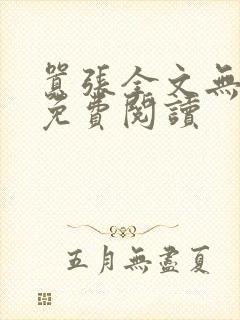 囂張全文無
免費閱讀
五月無盡夏